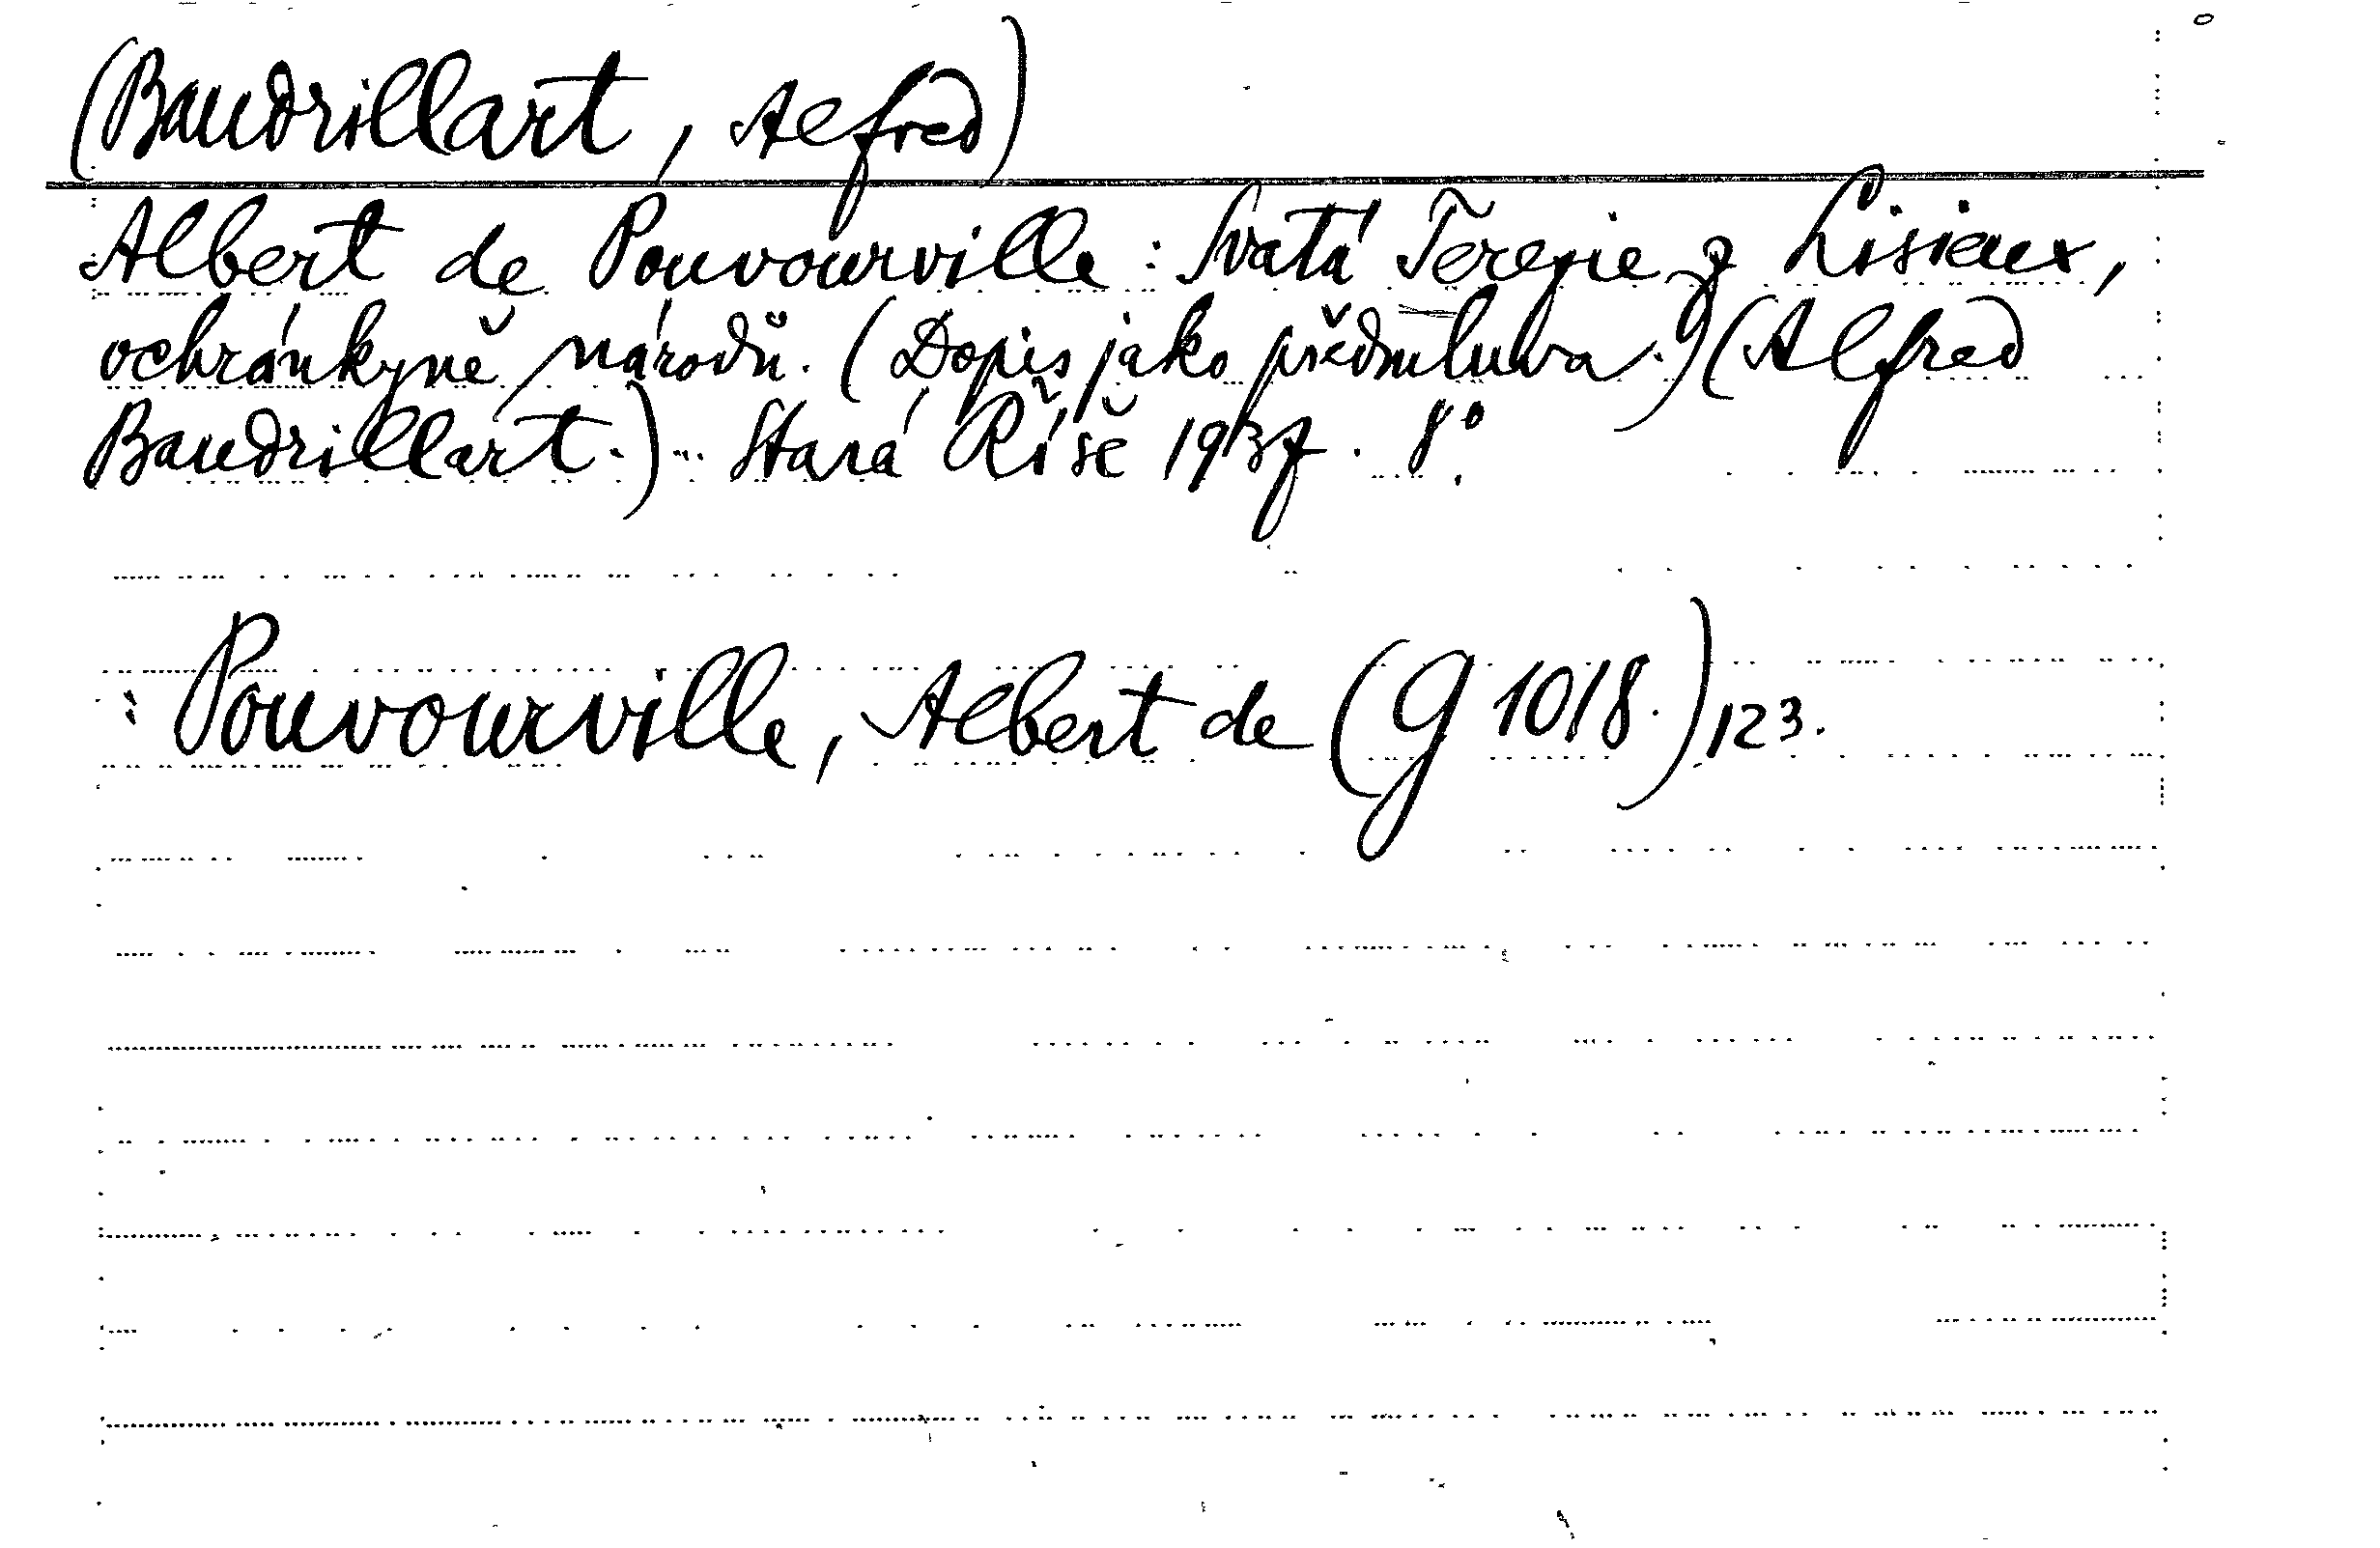 (Baudrillart, Alfred)
Albert de Pouvourville: Svatá Terezie z Lisieux,
ochránkyně národů. (Dopis jako předmluva.) (Alfred
Baudrillart.) Stará Říše 1937. 8°.
: Pouvourville, Albert de (G 1018.) 123.